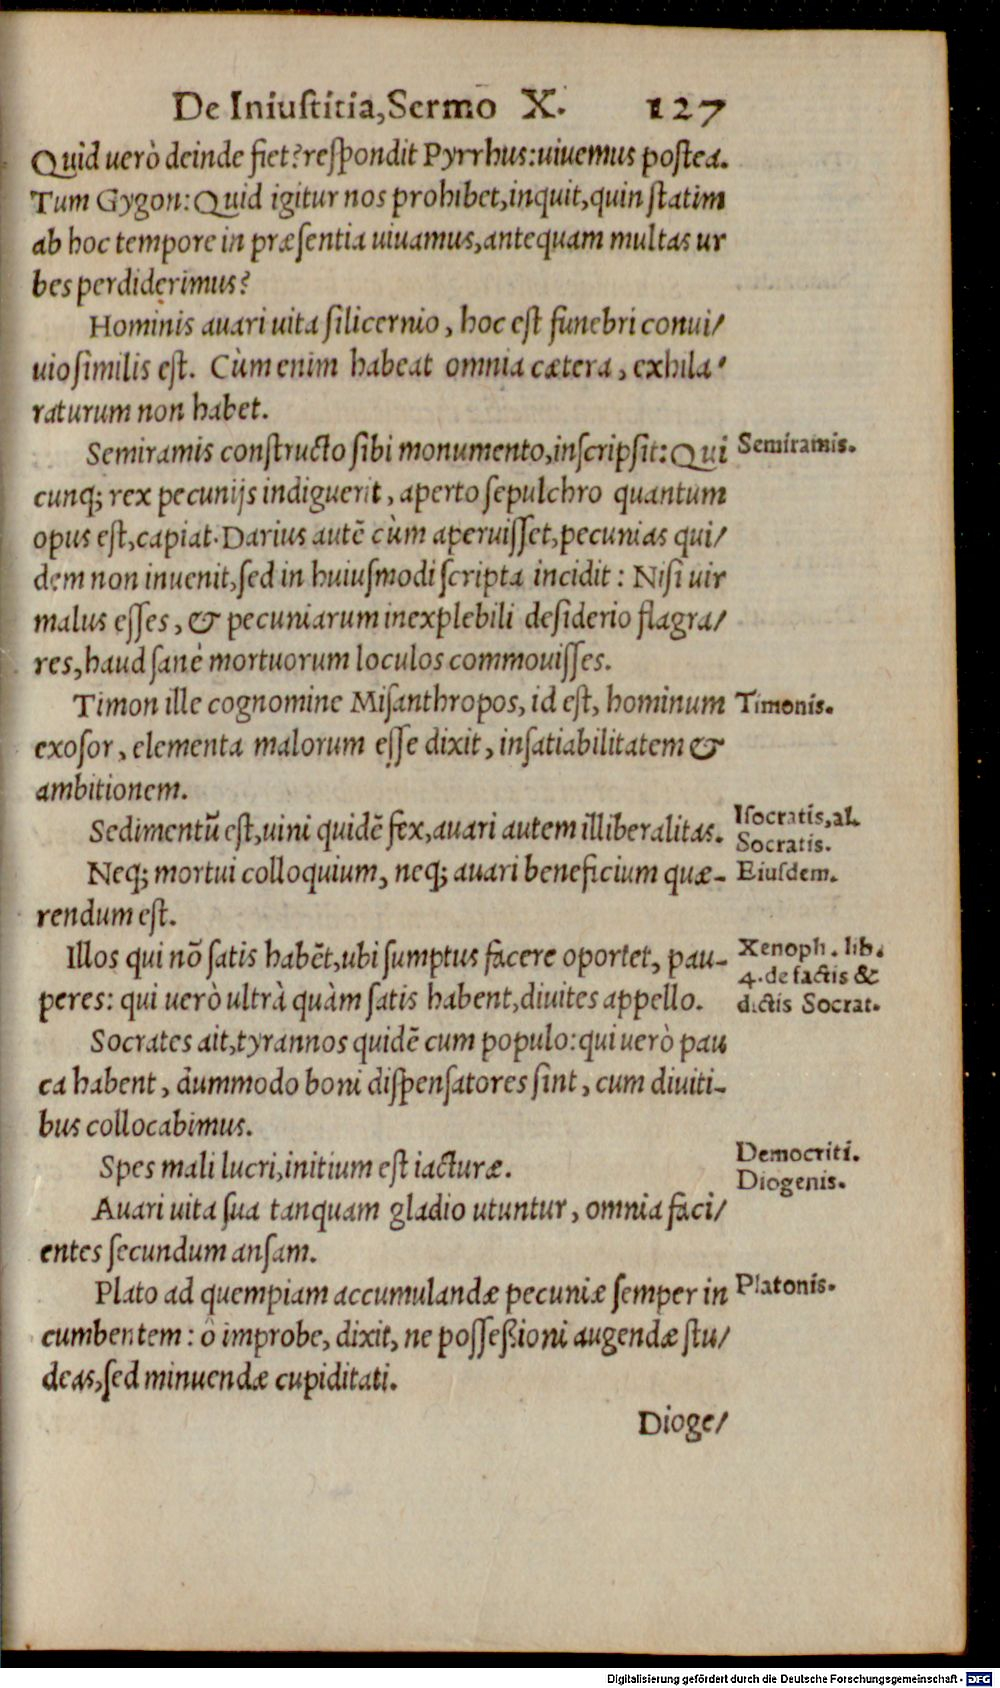 De Iniustitia, Sermo X. 127
Quid uerò deinde fiet? respondit Pyrrhus: uiuemus postea.
Tum Gygon: Quid igitur nos prohibet, inquit, quin statim
ab hoc tempore in præsentia uiuamus, antequam multas ur
bes perdiderimus?
Hominis auari uita silicernio, hoc est funebri conui/
uio similis est. Cùm enim habeat omnia cætera, exhila/
raturum non habet.
Semiramis constructo sibi monumento, inscripsit: Qui
cunq; rex pecunijs indiguerit, aperto sepulchro quantum
opus est, capiat. Darius autē cùm aperuisset, pecunias qui/
dem non inuenit, sed in huiusmodi scripta incidit: Nisi uir
malus esses, & pecuniarum inexplebili desiderio flagra/
res, haud sanè mortuorum loculos commouisses.
Timon ille cognomine Misanthropos, id est, hominum
exosor, elementa malorum esse dixit, insatiabilitatem &
ambitionem.
Sedimentū est, uini quidē fex, auari autem illiberalitas.
Neq; mortui colloquium, neq; auari beneficium quæ-
rendum est.
Illos qui nō satis habēt, ubi sumptus facere oportet, pau-
peres: qui uerò ultrà quàm satis habent, diuites appello.
Socrates ait, tyrannos quidē cum populo: qui uerò pau
ca habent, dummodo boni dispensatores sint, cum diuiti-
bus collocabimus.
Spes mali lucri, initium est iacturæ.
Auari uita sua tanquam gladio utuntur, omnia faci/
entes secundum ansam.
Plato ad quempiam accumulandæ pecuniæ semper in
cumbentem: ô improbe, dixit, ne posseßioni augendæ stu/
deas, sed minuendæ cupiditati.
Dioge/
Semiramis.
Timonis.
Isocratis, al.
Socratis.
Eiusdem.
Xenoph. lib.
4. de factis &
dictis Socrat.
Democriti.
Diogenis.
Platonis.
Digitalisierung gefördert durch die Deutsche Forschungsgemeinschaft - DFG